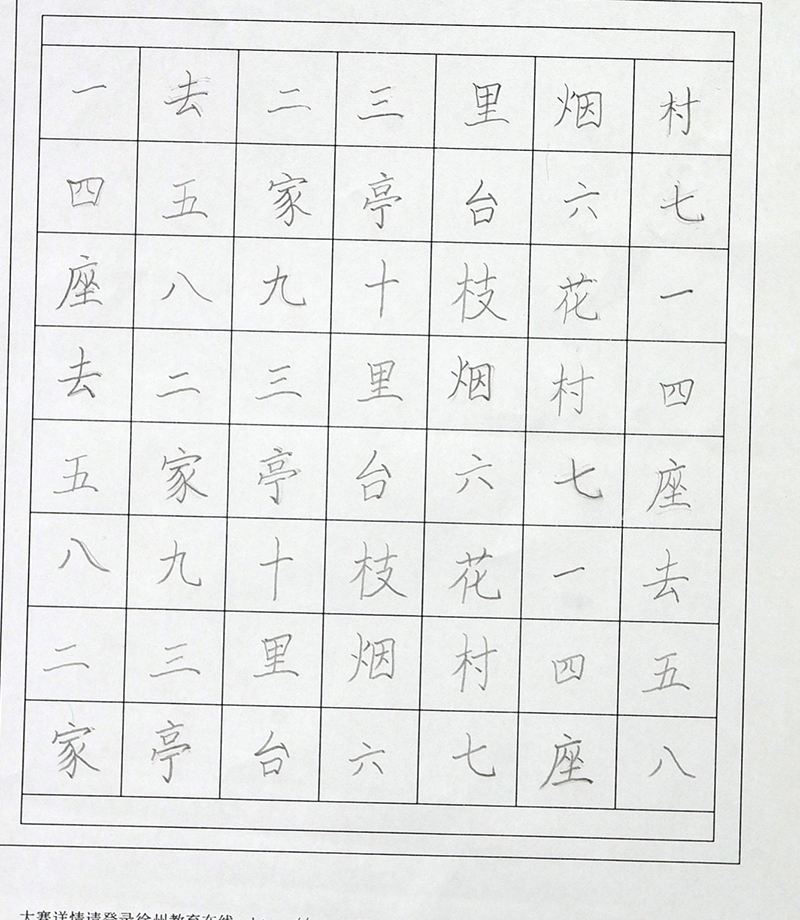 一去二三里烟村
四五家亭台六七
座八九十枝花一
去二三里烟村四
五家亭台六七座
八九十枝花一去
二三里烟村四五
家亭台六七座八
大赛详情请登录徐州教育在线